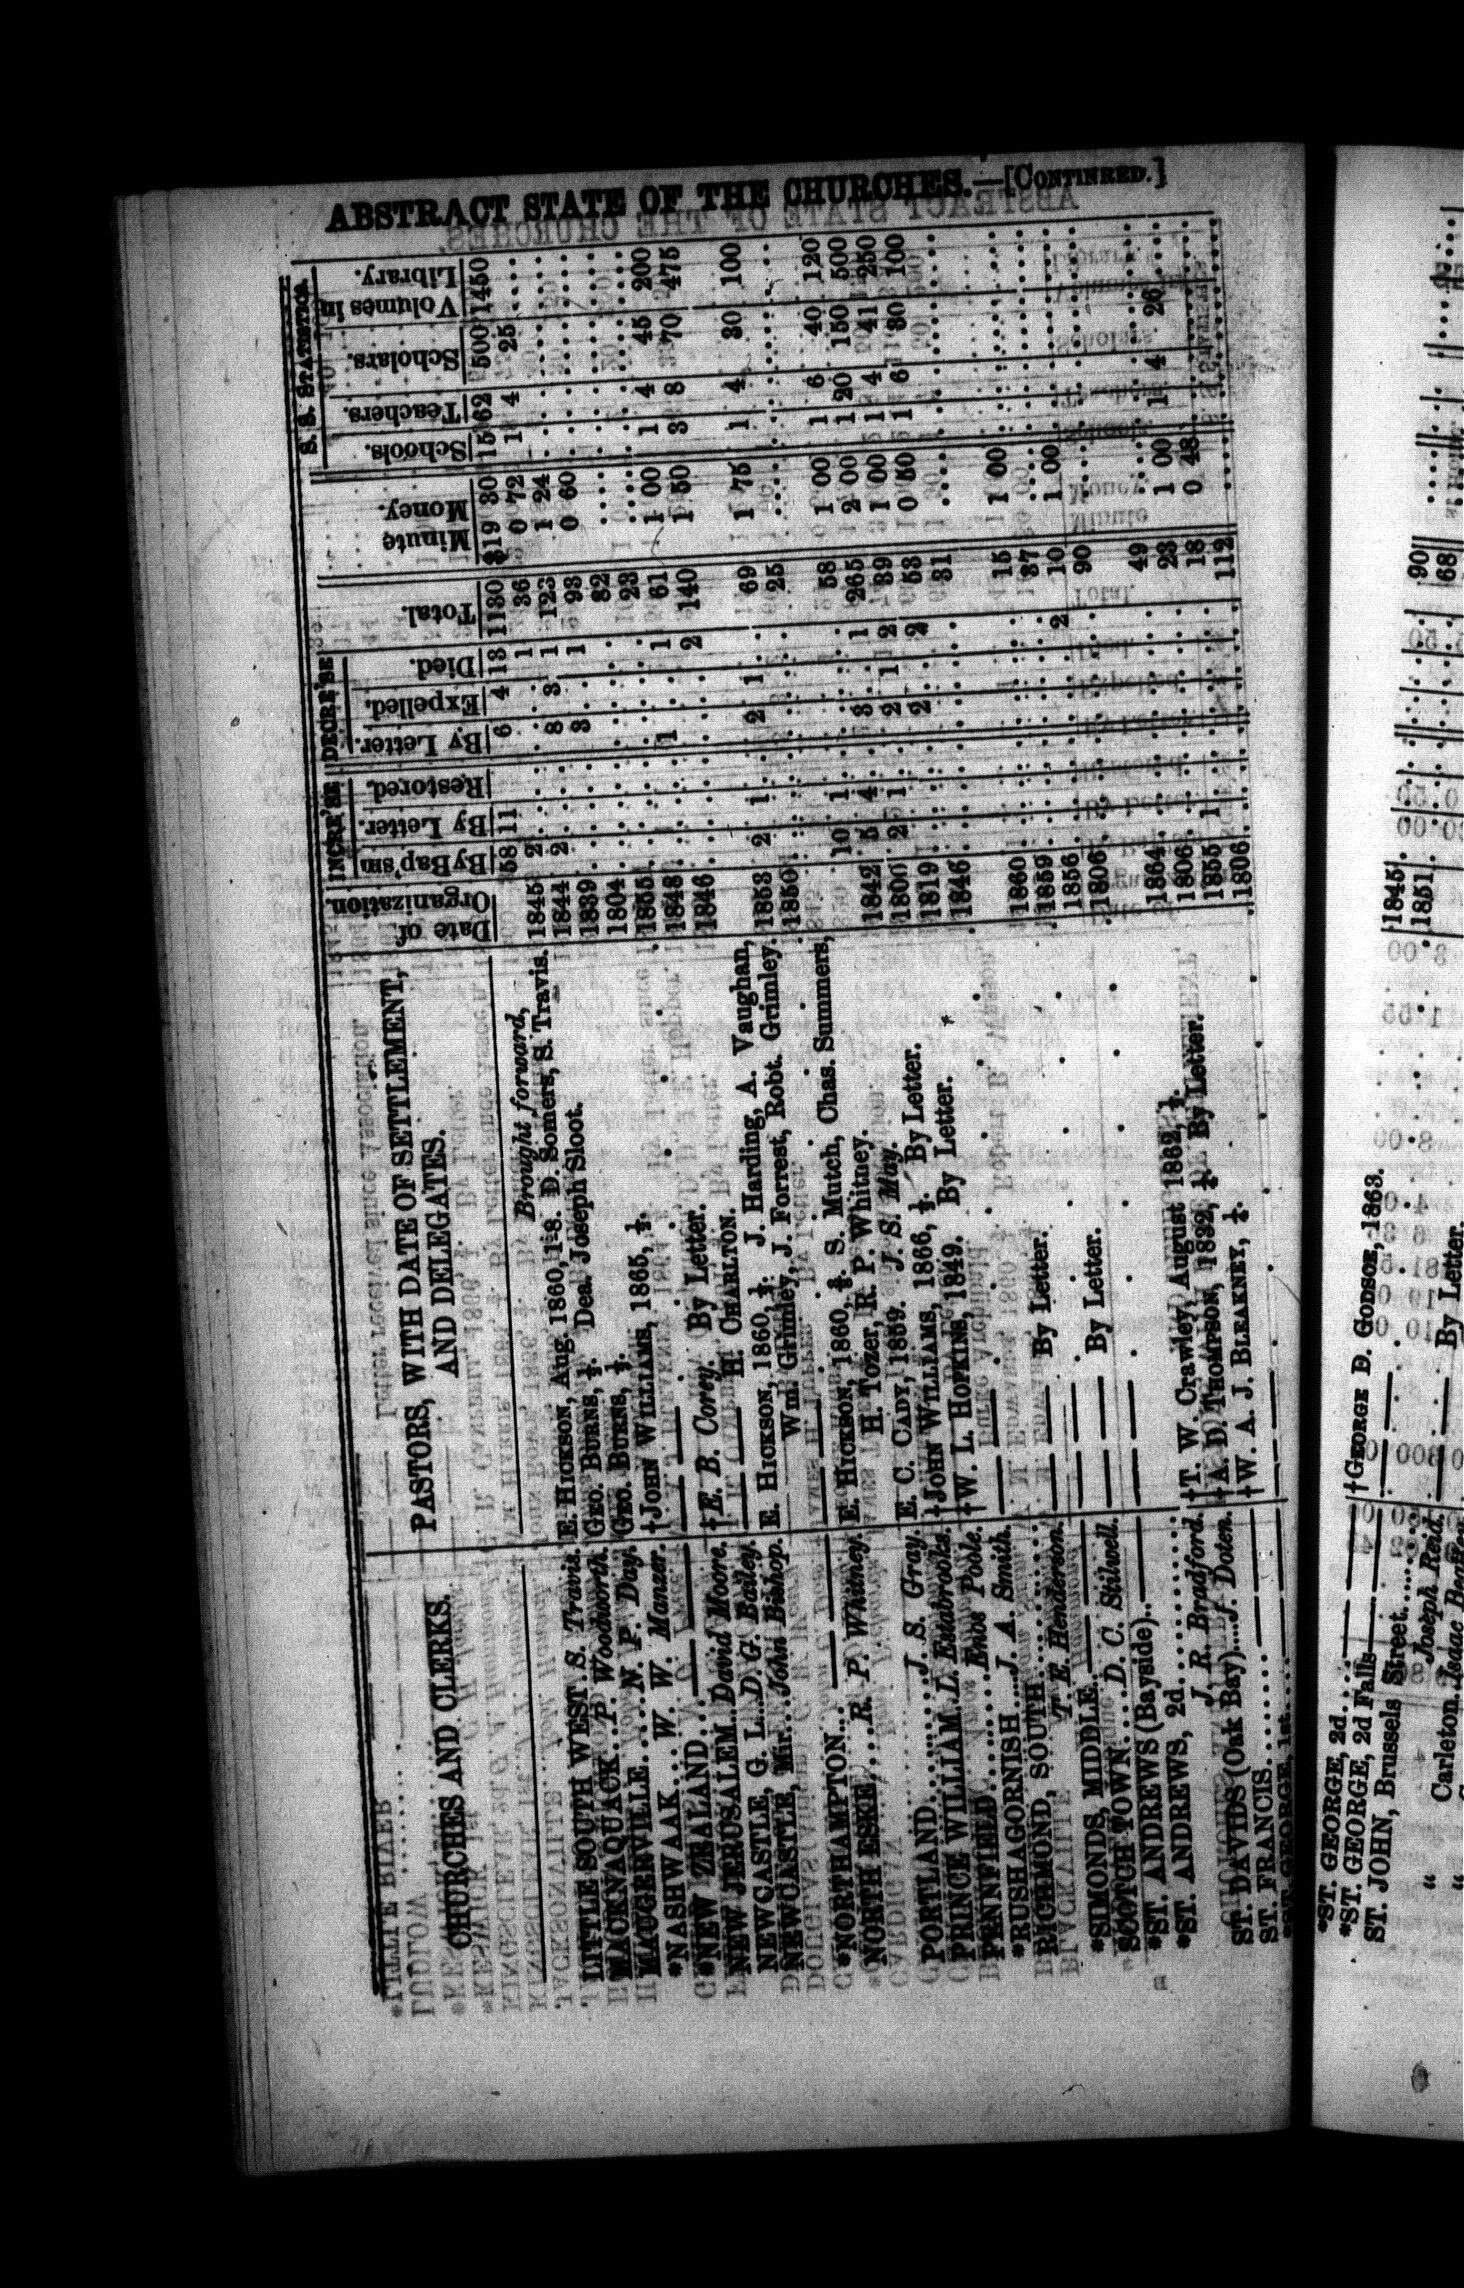 ABSTRACT STATE OF THE CHURCHES.—[CONTINRED.]
CHURCHES AND CLERKS.
PASTORS, WITH DATE OF SETTLEMENT,
AND DELEGATES.
Date of
Organization.
INCRE'SE
By Bap'sm
By Letter.
Restored.
DECRE'SE
By Letter.
Expelled.
Died.
Total.
Minute
Money.
S. S. STATISTICS.
Schools.
Teachers.
Scholars.
Volumes in
Library.
Brought forward, 58 11 6 4 13 1130 $19 30 15 62 500 1450
LITTLE SOUTH WEST S. Travis. E. HICKSON, Aug. 1860, 1-8. D. Somers, S. Travis. 1845 2 1 36 0 72 1 4 25
MACKNAQUACK P. Woodworth. GEO. BURNS, ½. Dea. Joseph Sloot. 1844 2 8 3 1 123 1 24
MAUGERVILLE N. P. Day. GEO. BURNS, ½. 1839 3 1 93 0 60
*NASHWAAK W. W. Manzer. †JOHN WILLIAMS, 1865, ¼. 1804 82
*NEW ZEALAND 1855 23
NEW JERUSALEM David Moore. †E. B. Corey. By Letter. 1848 1 1 61 1 00 1 4 45 200
NEWCASTLE, G. L. D. G. Bailey. H. CHARLTON. 1846 2 140 1 50 3 8 70 475
NEWCASTLE, Mir. John Bishop. E. HICKSON, 1860, ¼. J. Harding, A. Vaughan,
Wm. Grimley, J. Forrest, Robt. Grimley. 1853 2 1 2 1 69 1 75 1 4 30 100
*NORTHAMPTON 1850 25
NORTH ESKE R. P. Whitney. E. HICKSON, 1860, ⅜. S. Mutch, Chas. Summers,
H. Tozer, R. P. Whitney. 58 1 00 1 6 40 120
PORTLAND J. S. Gray. E. C. CADY, 1859. J. S. May. 1842 10 1 3 1 265 2 00 1 20 150 500
PRINCE WILLIAM J. Estabrooks. †JOHN WILLIAMS, 1866, ½. By Letter. 1800 5 4 2 1 2 1 00 1 4 41 250
PENNFIELD Enos Poole. †W. L. HOPKINS, 1849. By Letter. 1819 2 1 2 2 53 0 50 1 6 30 100
*RUSHAGORNISH J. A. Smith. 1846 31
RICHMOND, SOUTH
T. E. Henderson. By Letter. 1860 15 1 00
*SIMONDS, MIDDLE 1859 37
SCOTCH TOWN D. C. Stilwell. By Letter. 1856 2 10 1 00
*ST. ANDREWS (Bayside) 1806 90
*ST. ANDREWS, 2d
J. R. Bradford. †T. W. Crawley, August 1862, ½. 1864 49
ST. DAVIDS (Oak Bay) J. Doten. †A. D. THOMPSON, 1832, ¼. By Letter. 1806 23 1 00 1 4 26
ST. FRANCIS †W. A. J. BLEAKNEY, ¼. 1855 1 18 0 48
*ST. GEORGE, 1st. 1806 112
*ST. GEORGE, 2d
*ST. GEORGE, 2d Falls
ST. JOHN, Brussels Street
Joseph Reid. †GEORGE D. GODSOE, 1863. 1845 90
“ Carleton By Letter. 1851 68